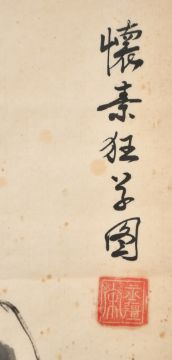 懷素狂草圖